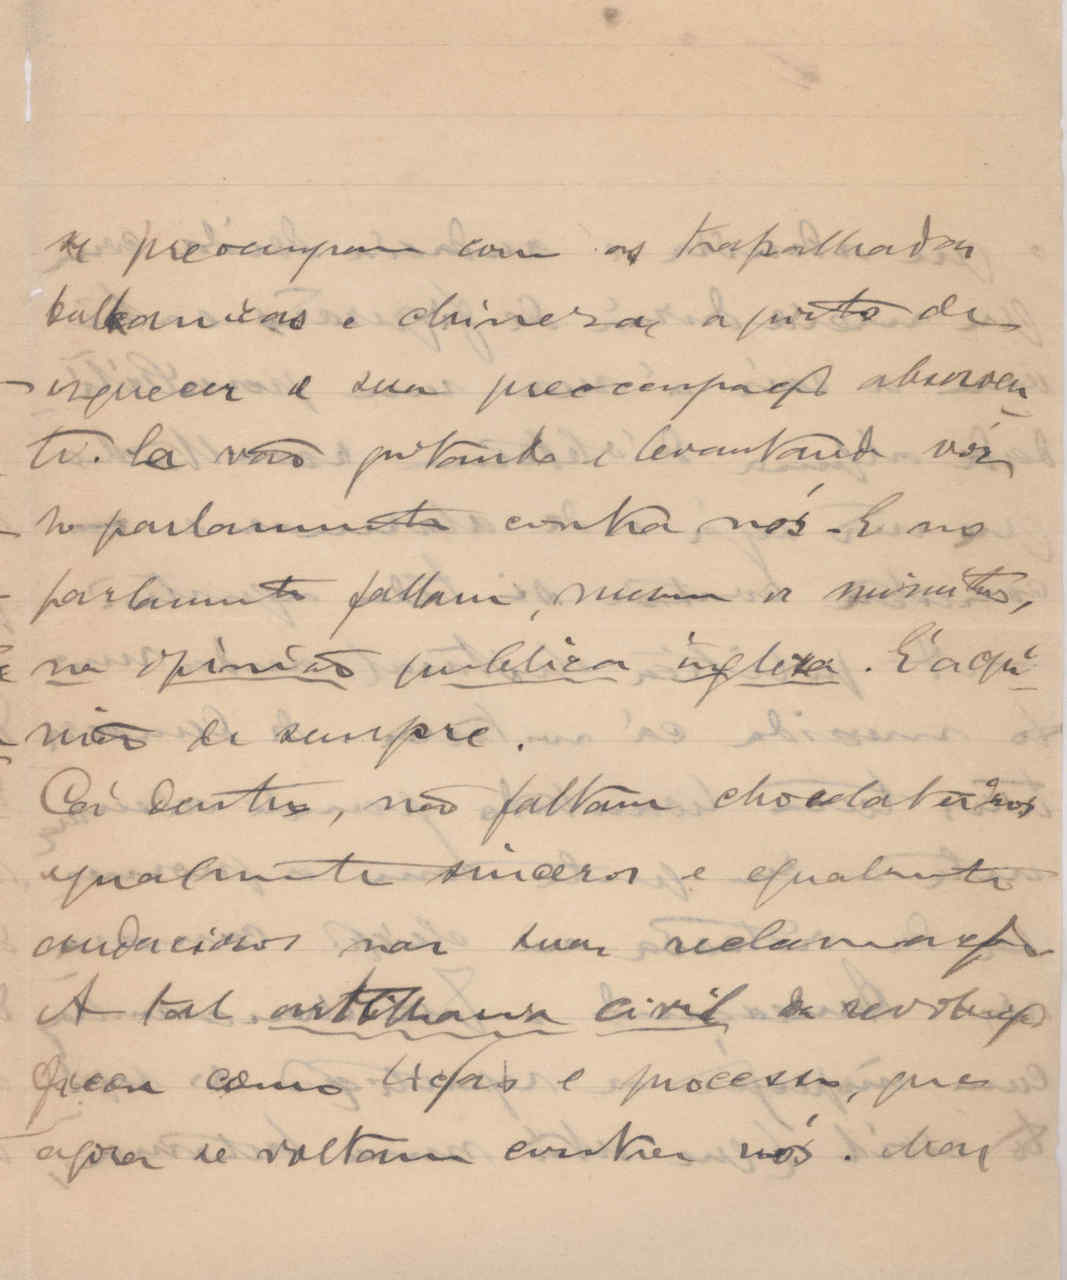 se preocupam com as trapalhadas
balkanicas e chinezas, a ponto de
esquecer a sua preocupação absorven
te. Lá vão gritando e levantando vóz
no parlamento contra nós. E no
parlamento fallam, nunca os ministros,
na opinião publica ingleza. E' a opi-
nião de sempre.
Cá dentro, não faltam chocolateiros
egualmente sinceros e egualmente
audaciosos nas suas reclamações
A tal artilharia civil da revolução
ficou como lição e processo, que
agora se voltam contra nós. Mas